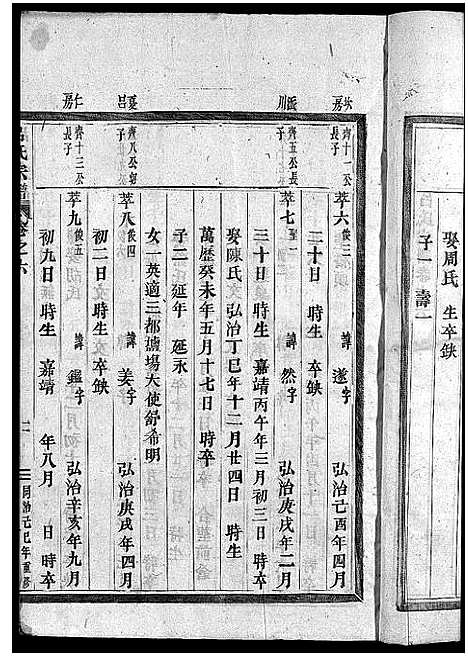 娶周氏 生卒缺
子一 壽二
房
齊十一公
長子
萃六 後三 諱 遂字 弘治己酉年四月
二十日 時生 卒缺
派川
齊五公長
子
萃七 至一 諱 然字 弘治庚戌年二月
三十日 時生 嘉靖丙午年三月初三日 時卒
娶陳氏 弘治丁巳年十二月廿四日 時生
萬歷癸未年五月十七日 時卒
子二 延年 延永
女一英適三都壙場大使舒希明
夏呂
齊八公
子
萃八 後四 諱 姜字 弘治庚戌年四月
初二日 時生 卒缺
仁房
齊十三公
長子
萃九 後五 諱 鑑字 弘治辛亥年九月
初九日 時生 嘉靖 年八月 日 時卒
氏宗譜 卷之六 二 同治己巳年重修